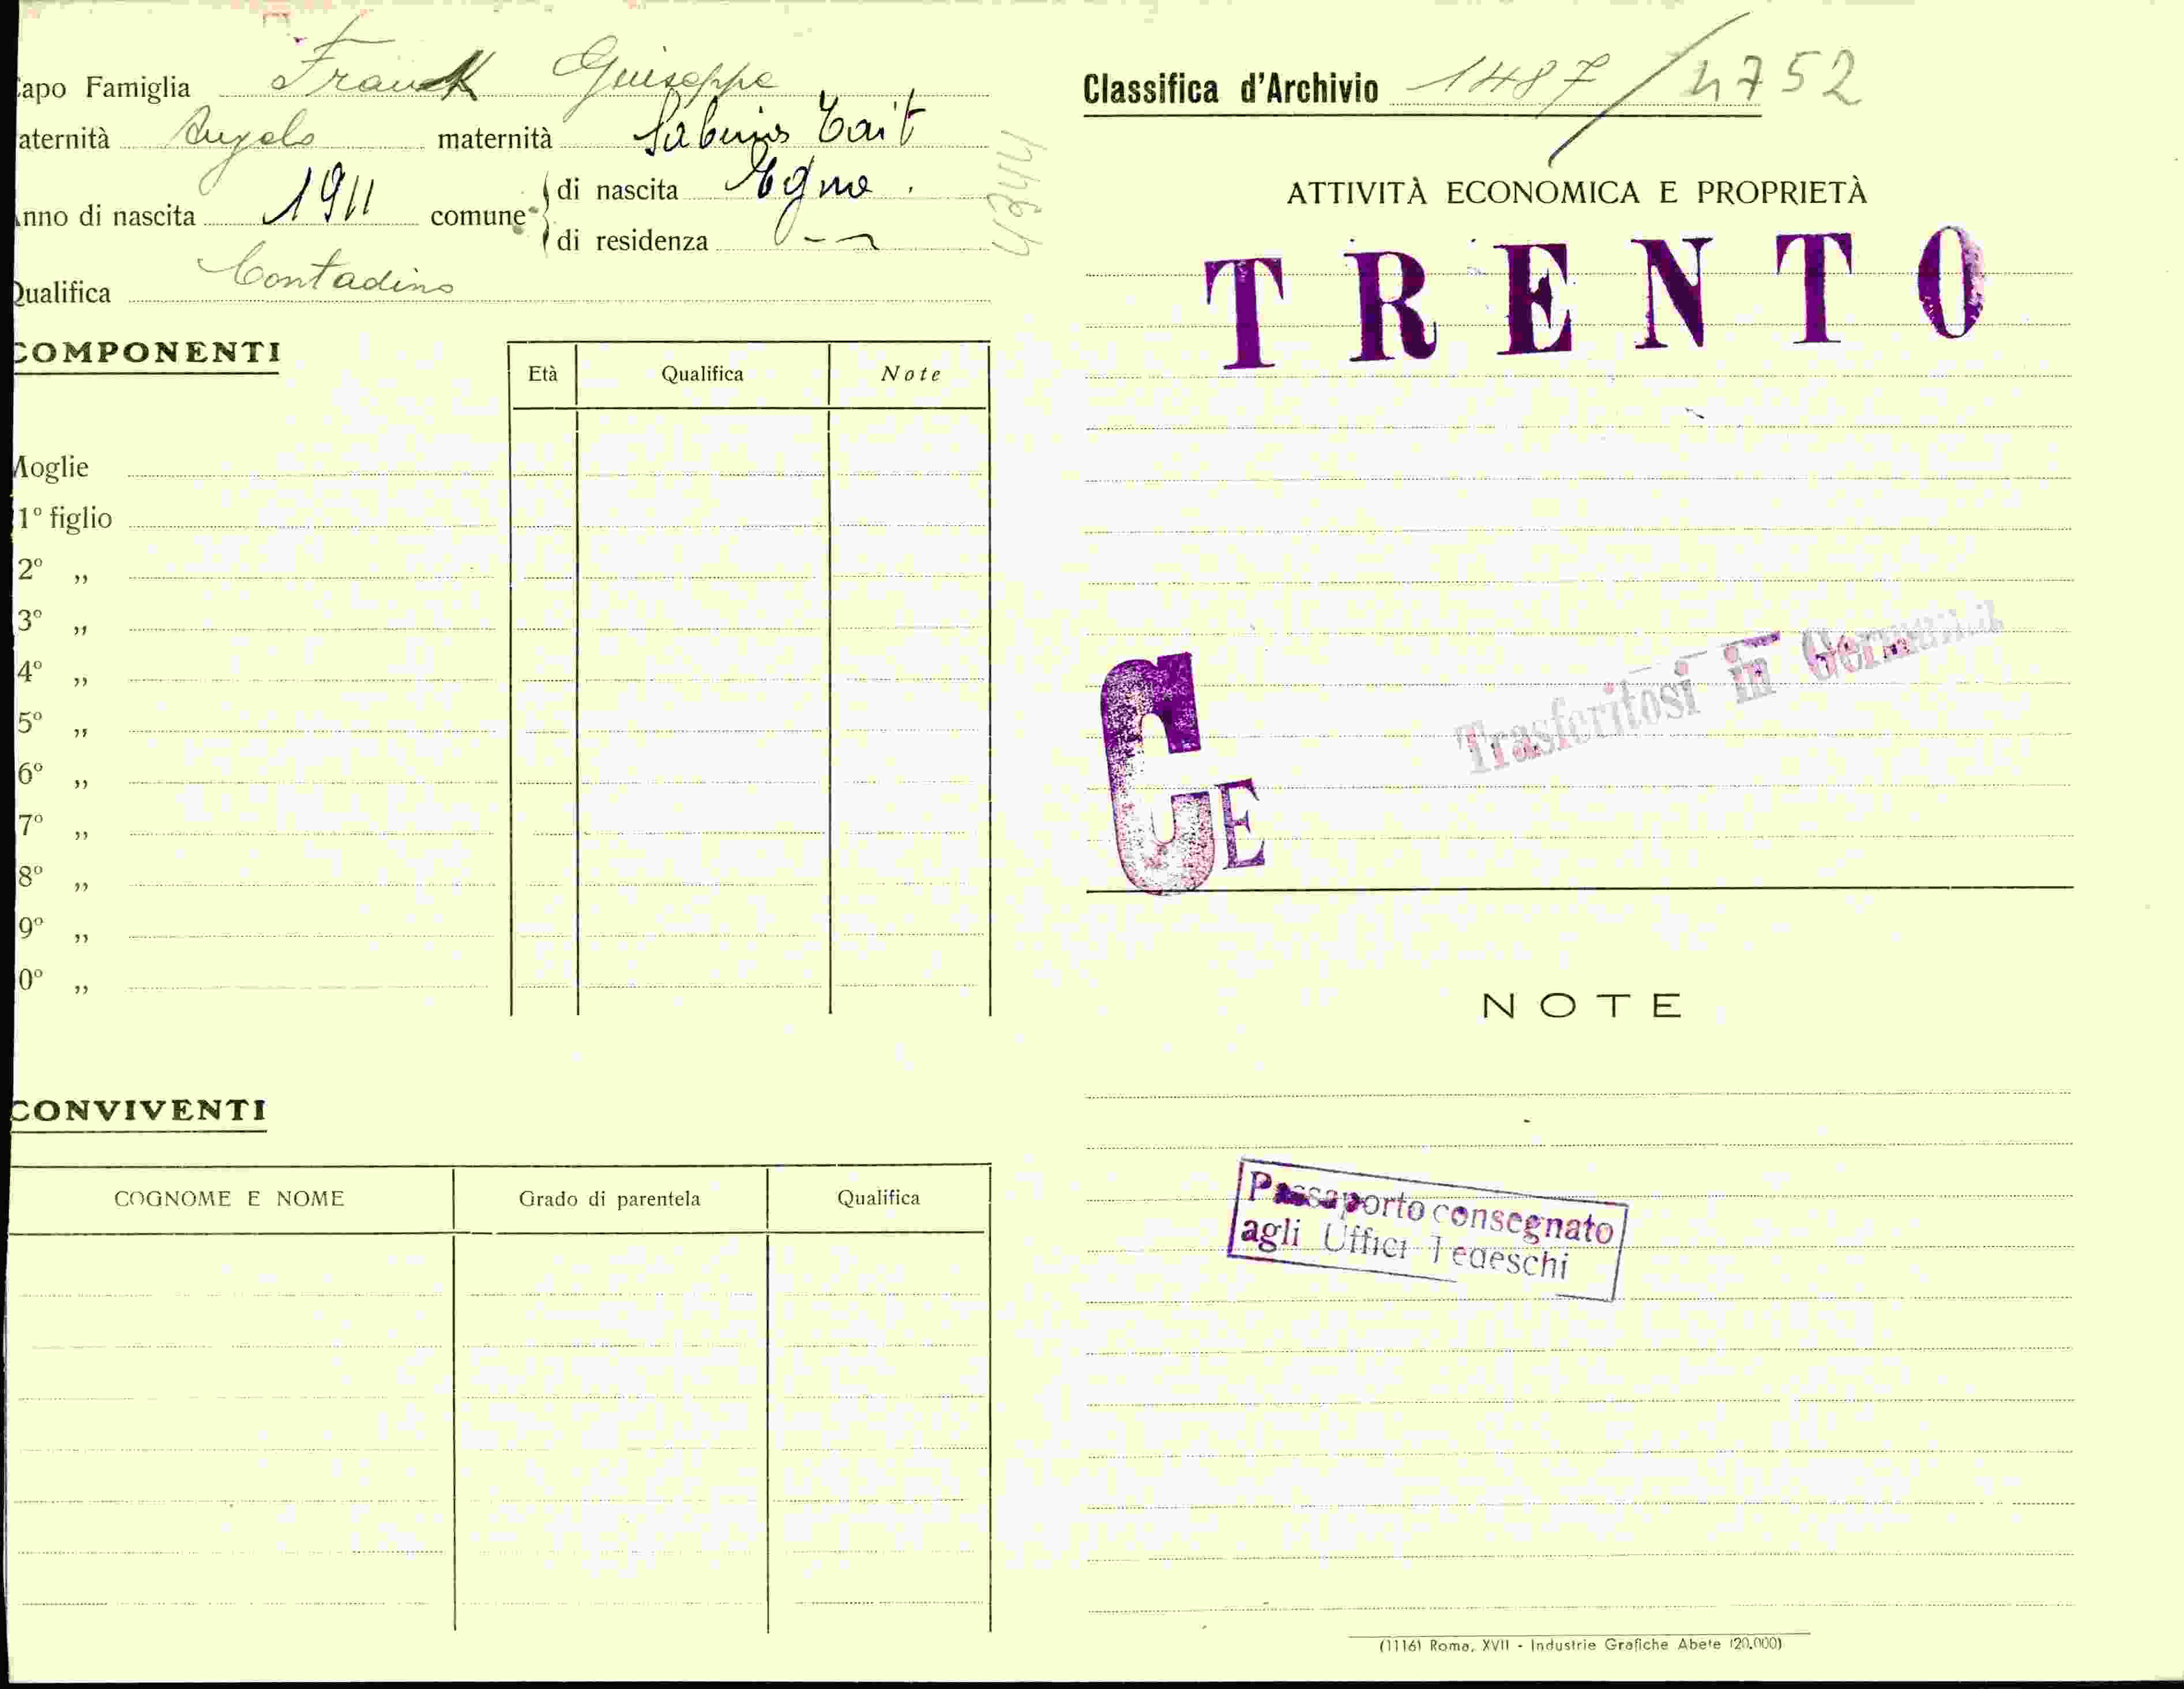 apo Famiglia Franck Giuseppe
aternità Angelo maternità Sabina Tait
nno di nascita 1911 comune di nascita Egna
di residenza
Qualifica Contadino
COMPONENTI
Età Qualifica Note
Moglie
1° figlio
2° ,,
3° ,,
4° ,,
5° ,,
6° ,,
7° ,,
8° ,,
9° ,,
0° ,,
CONVIVENTI
COGNOME E NOME Grado di parentela Qualifica
Classifica d'Archivio 1487/4752
ATTIVITÀ ECONOMICA E PROPRIETÀ
TRENTO
Trasferitosi in Germania
GE
NOTE
Passaporto consegnato
agli Uffici Tedeschi
(1116) Roma, XVII - Industrie Grafiche Abete (20.000)